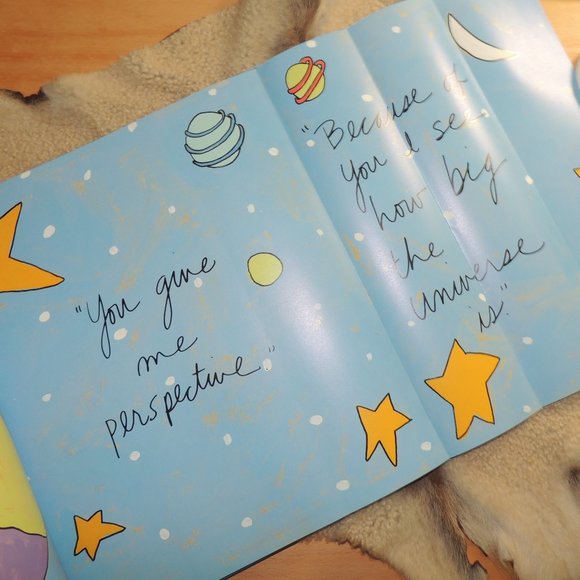 "You give
me
perspective."
"Because of
you I see
how big
the
universe
is."